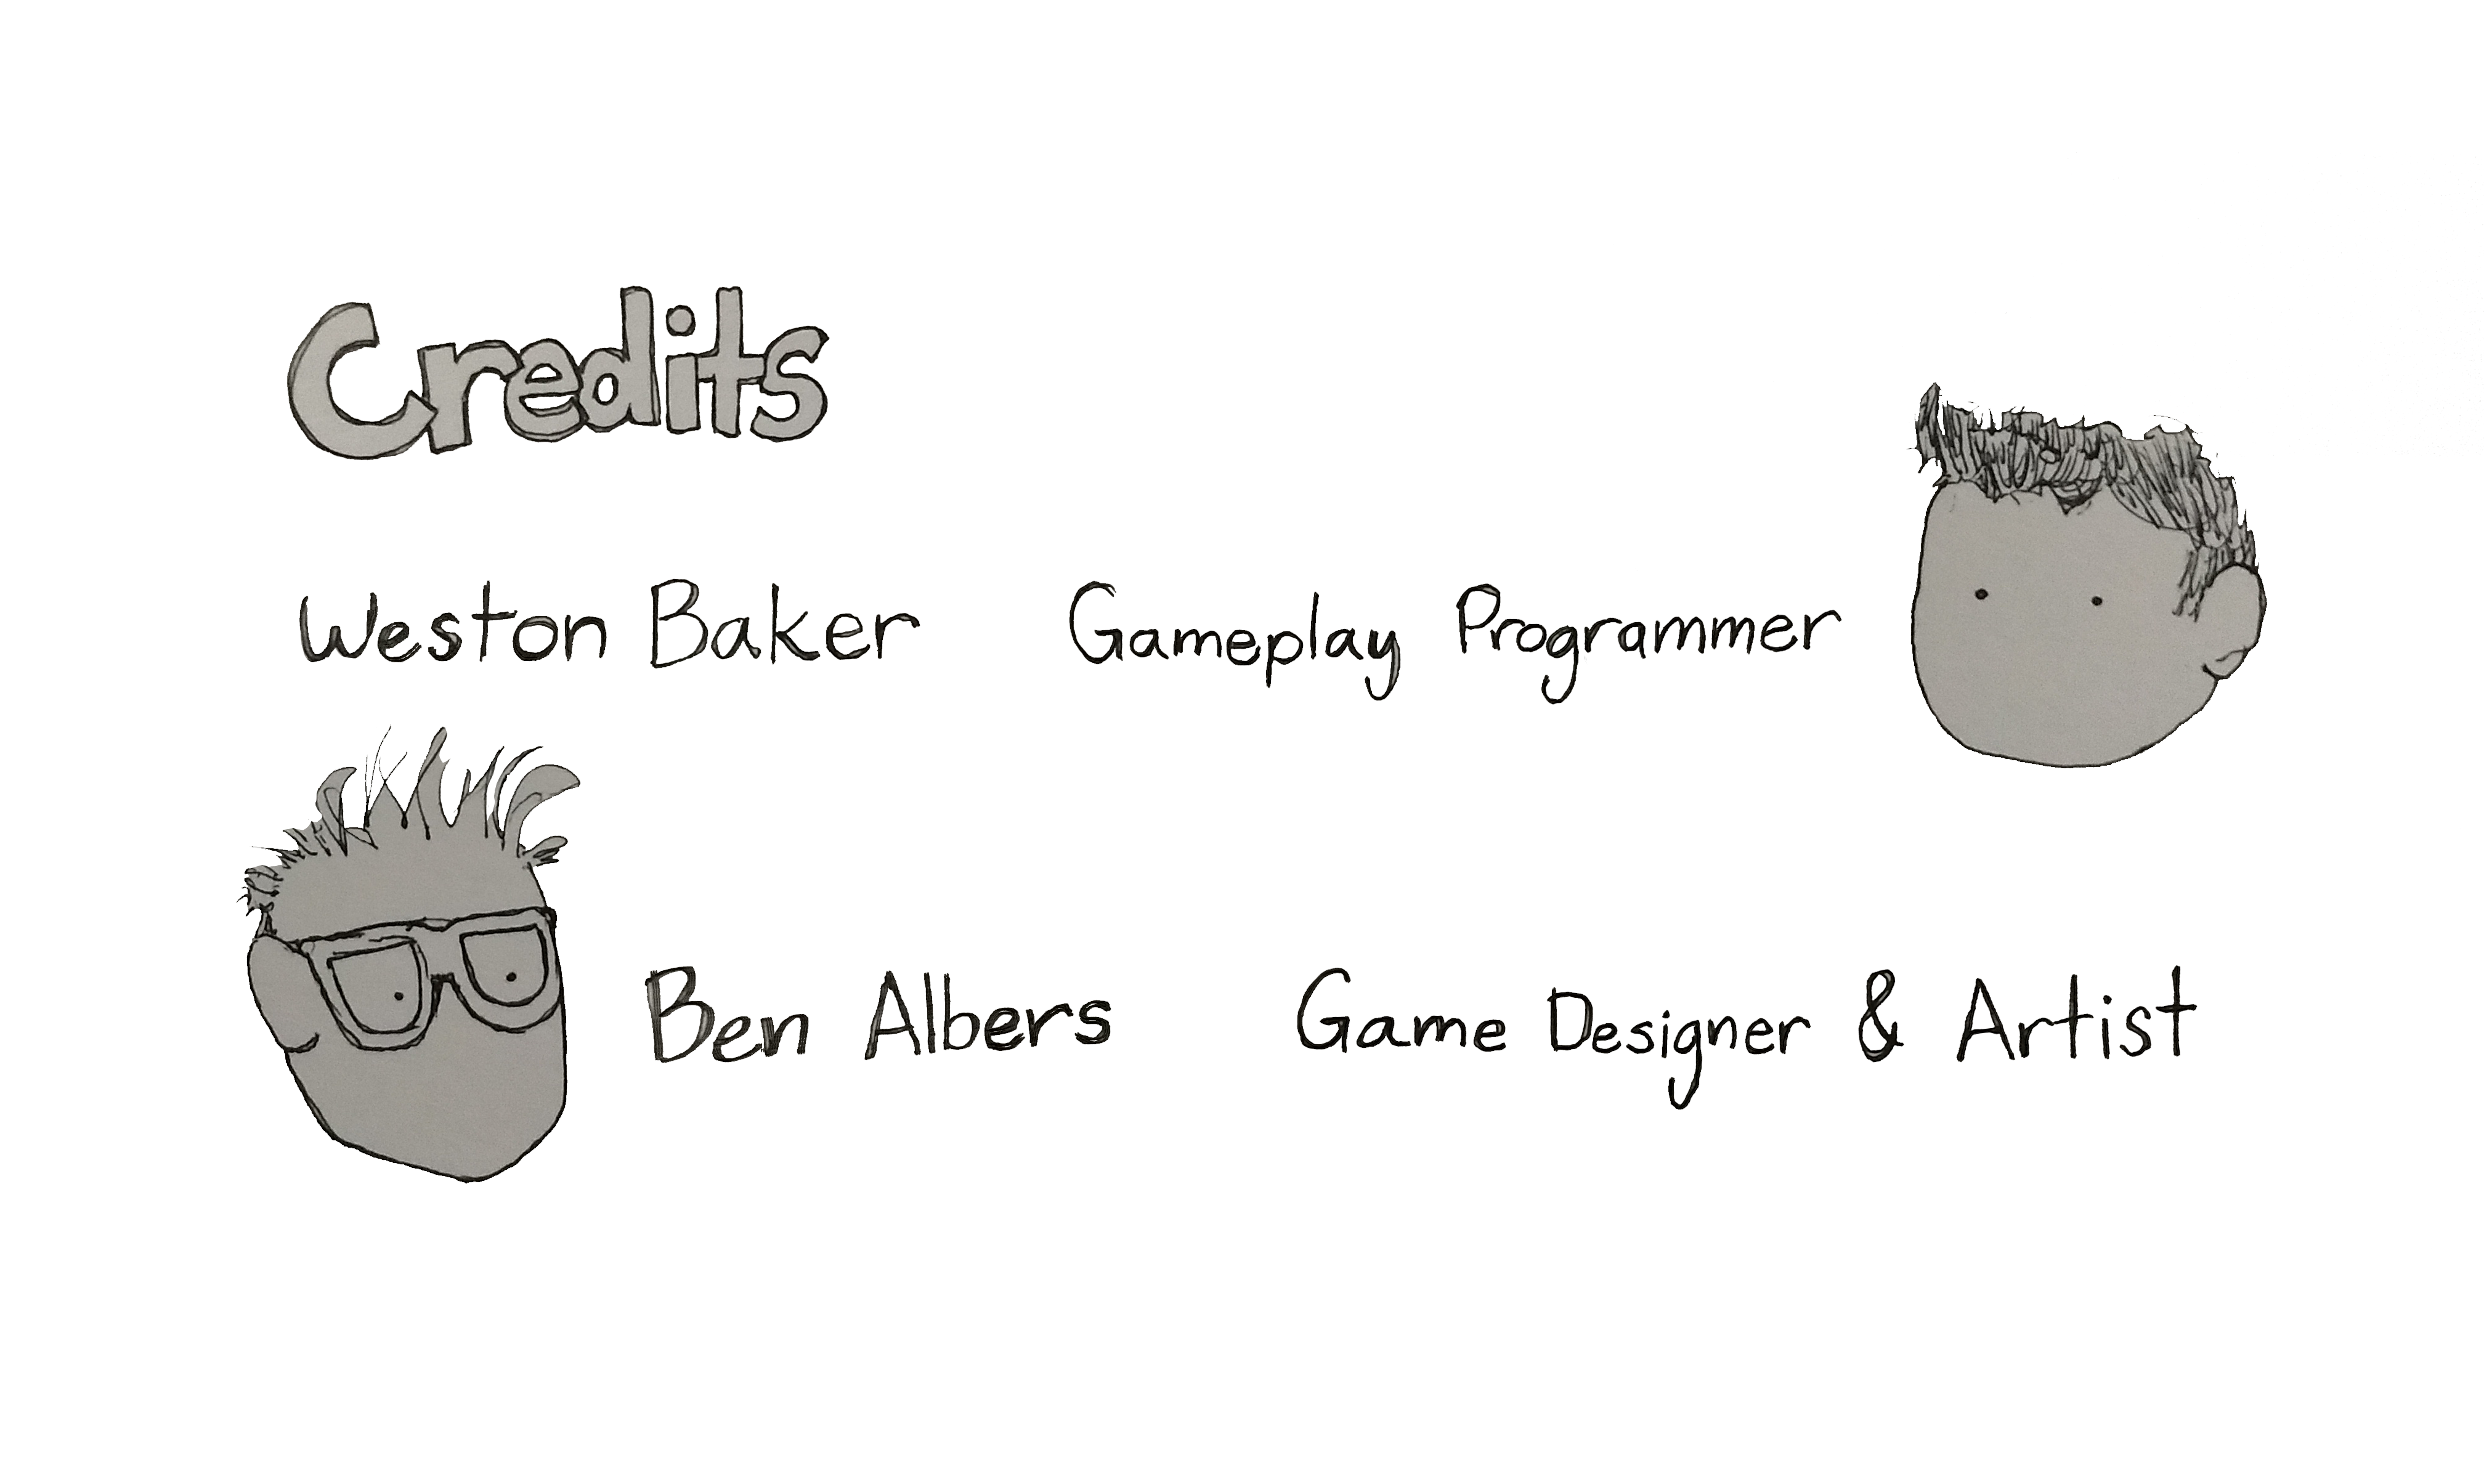 Credits
Weston Baker Gameplay Programmer
Ben Albers Game Designer & Artist